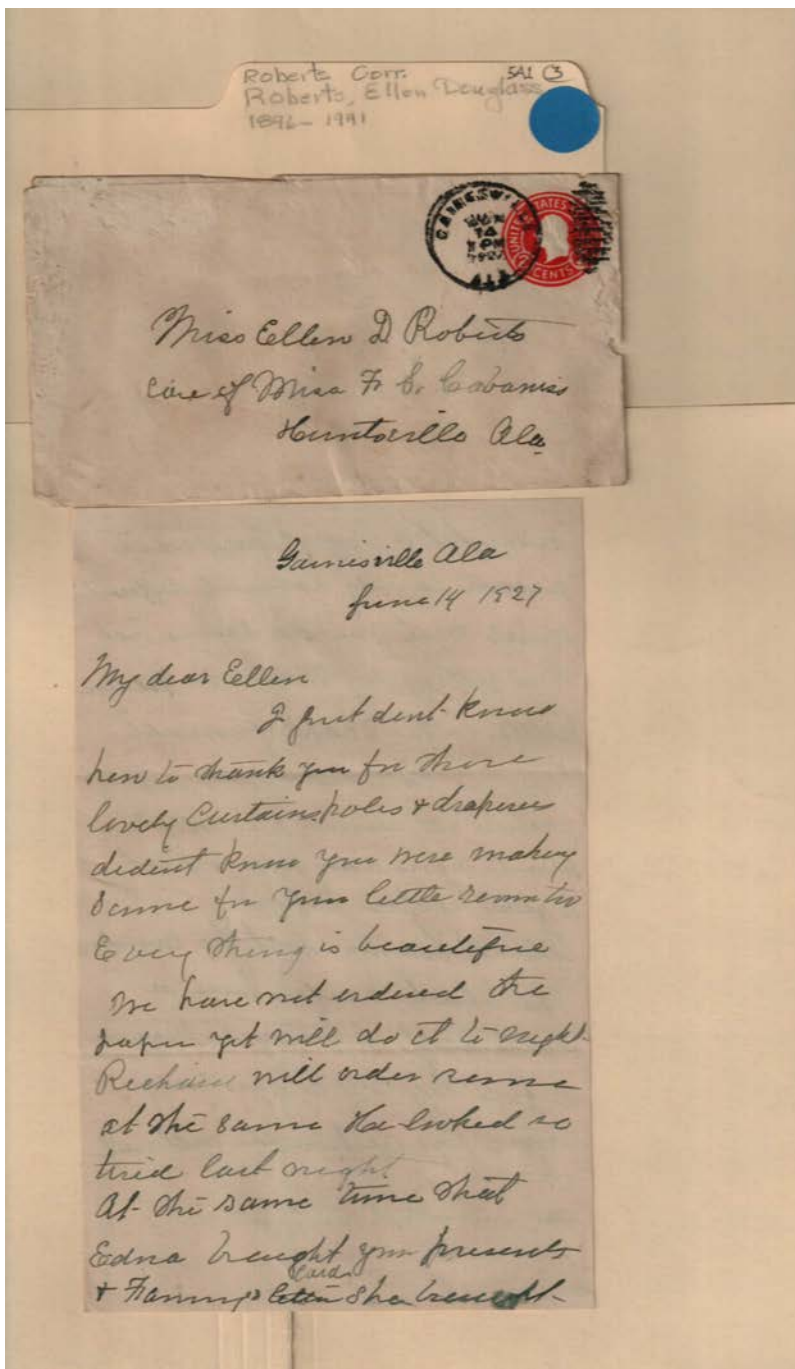 Roberts Corr. 5A1 C3
Roberts, Ellen Douglass
1896-1991
GAINESVILLE
14
PM
1927
UNITED STATES
2 CENTS
Miss Ellen D Roberts
Care of Miss F. C. Cabaniss
Huntsville Ala
Gainesville Ala
June 14 1927
My dear Ellen
I just dont know
how to thank you for those
lovely Curtains poles & draperies
dident know you were making
some for your little room too
Every thing is beautiful
We have not ordered the
paper yet will do it to night
Richard will order some
at the same He looked so
tired last night
At the same time that
Edna brought your presents
& Fannys letter card she brought